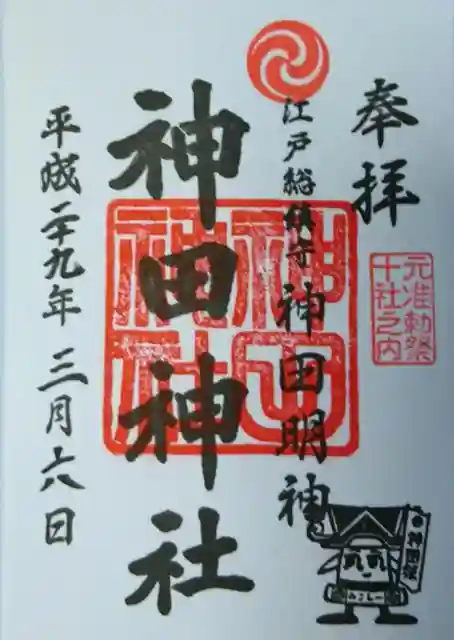 奉拝
元准勅祭
十社之内
江戸総鎮守 神田明神
神田神社
神田神社
平成二十九年 三月六日
みこしー